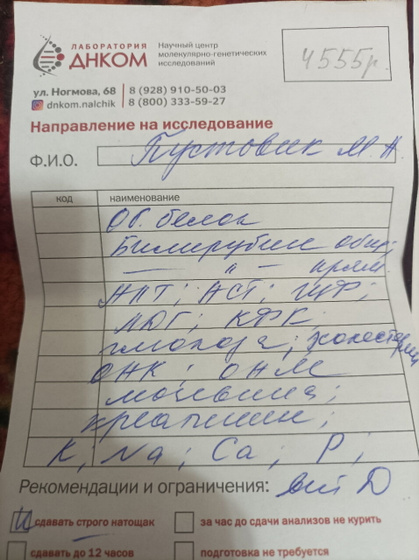 ЛАБОРАТОРИЯ
ДНКОМ
Научный центр
молекулярно-генетических
исследований
4555р.
ул. Ногмова, 68
8 (928) 910-50-03
dnkom.nalchik
8 (800) 333-59-27
Направление на исследование
Ф.И.О. Пустовик М.А.
код наименование
Об. белок
Билирубин общ;
— " — прям.
АЛТ; АСТ; ЩФ;
ЛДГ; КФК;
глюкоза; холестерин
мочевина;
креатинин;
K, Na; Ca; P;
Рекомендации и ограничения: вит D
сдавать строго натощак
за час до сдачи анализов не курить
сдавать до 12 часов
подготовка не требуется